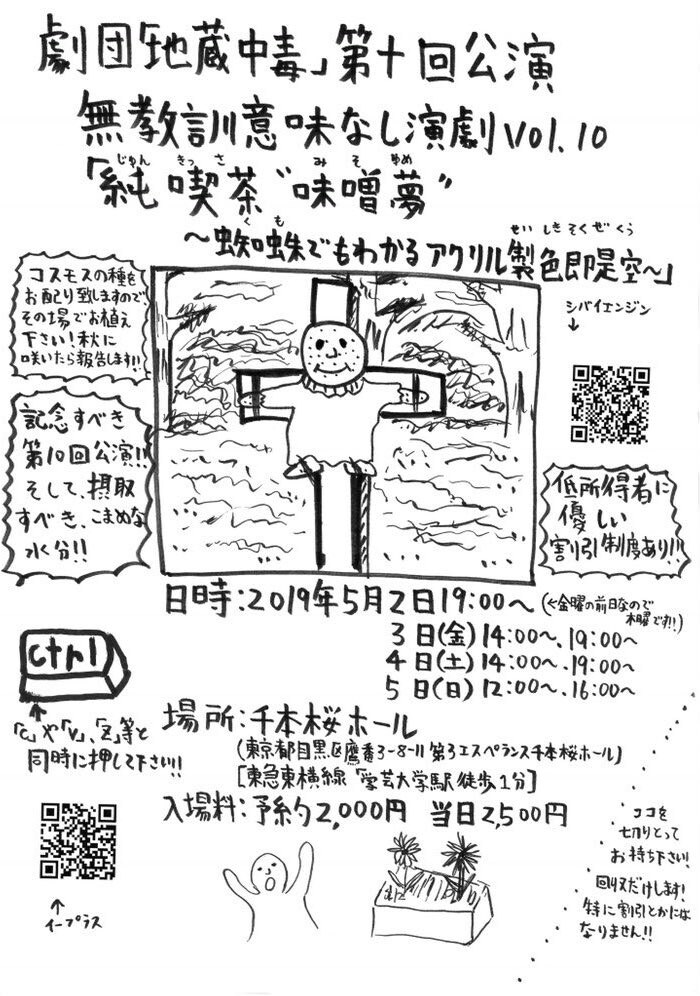 劇団「地蔵中毒」第十回公演
無教訓意味なし演劇vol.10
じゅん きっ さ み そ ゆめ
「純喫茶“味噌夢”
く も せい しき そく ぜ くう
〜蜘蛛でもわかるアクリル製色即是空〜」
コスモスの種を
お配り致しますので、
その場でお植え
下さい!秋に
咲いたら報告します!!
シバイエンジン
↓
記念すべき
第10回公演!!
そして、摂取
すべき、こまめな
水分!!
低所得者に
優しい
割引制度あり!!
日時:2019年5月2日19:00〜(←金曜の前日なので
木曜です!!)
3日(金)14:00〜、19:00〜
4日(土)14:00〜、19:00〜
5日(日)12:00〜、16:00〜
ctrl
↑
「c」や「v」、「z」等と
同時に押して下さい!!
場所:千本桜ホール
(東京都目黒区鷹番3-8-11 第3エスペランス千本桜ホール)
[東急東横線「学芸大学駅」徒歩1分]
入場料:予約2,000円 当日2,500円
↑
イープラス
ココを
切りとって
お持ち下さい!
回収だけします!
特に割引とかには
なりません!!